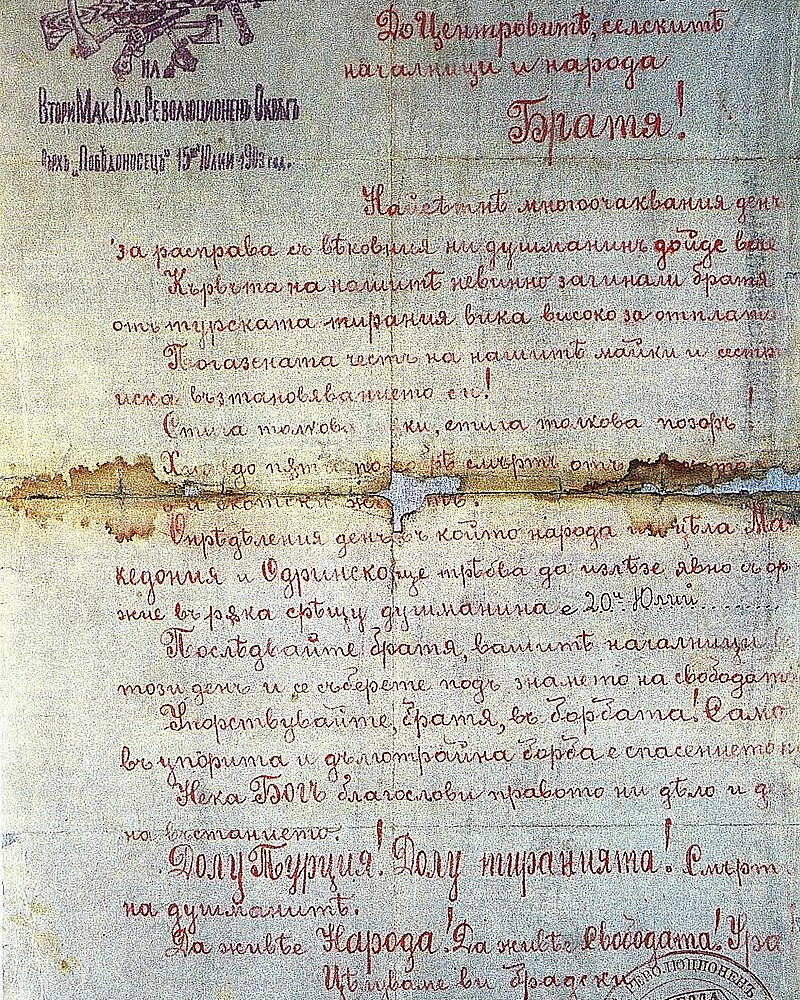 До Центровитѣ, селскитѣ
началници и народа
НА
ВТОРИ МАК. ОДР. РЕВОЛЮЦИОНЕНЪ ОКРѪГЪ
Върхъ „Побѣдоносецъ" 15ий Юлий 1903 год.
Братя!
Найсѣтнѣ многоочаквания день
за расправа съ вѣковния ни душманинъ дойде вече
Кървъта на нашитѣ невинно загинали братя
отъ турската тирания вика високо за отплата
Погазената честъ на нашитѣ майки и сестри
иска възтановяванието си!
Стига толкова ки, стига толкова позоръ!
до пѫти по смърть отъ
и скотски
Опрѣдѣления денъ въ който народа изъ цѣла Ма-
кедония и Одринско ще трѣбва да излѣзе явно съ ор-
жие въ рѫка срѣщу душманина е 20й Юлий........
Послѣдвайте братя, вашитѣ началници
този день и се съберете подъ знамето на свободата
Упорствувайте, братя, въ борбата! Само
въ упорита и дълготрайна борба е спасението н
Нека Богъ благослови правото ни дѣло и д
на въстанието.
Долу Турция! Долу тиранията! Смърть
на душманитѣ.
Да живѣе Народа! Да живѣе Свободата! Ура
Цѣлуваме ви брадски
РЕВОЛЮЦИОНЕНЪ